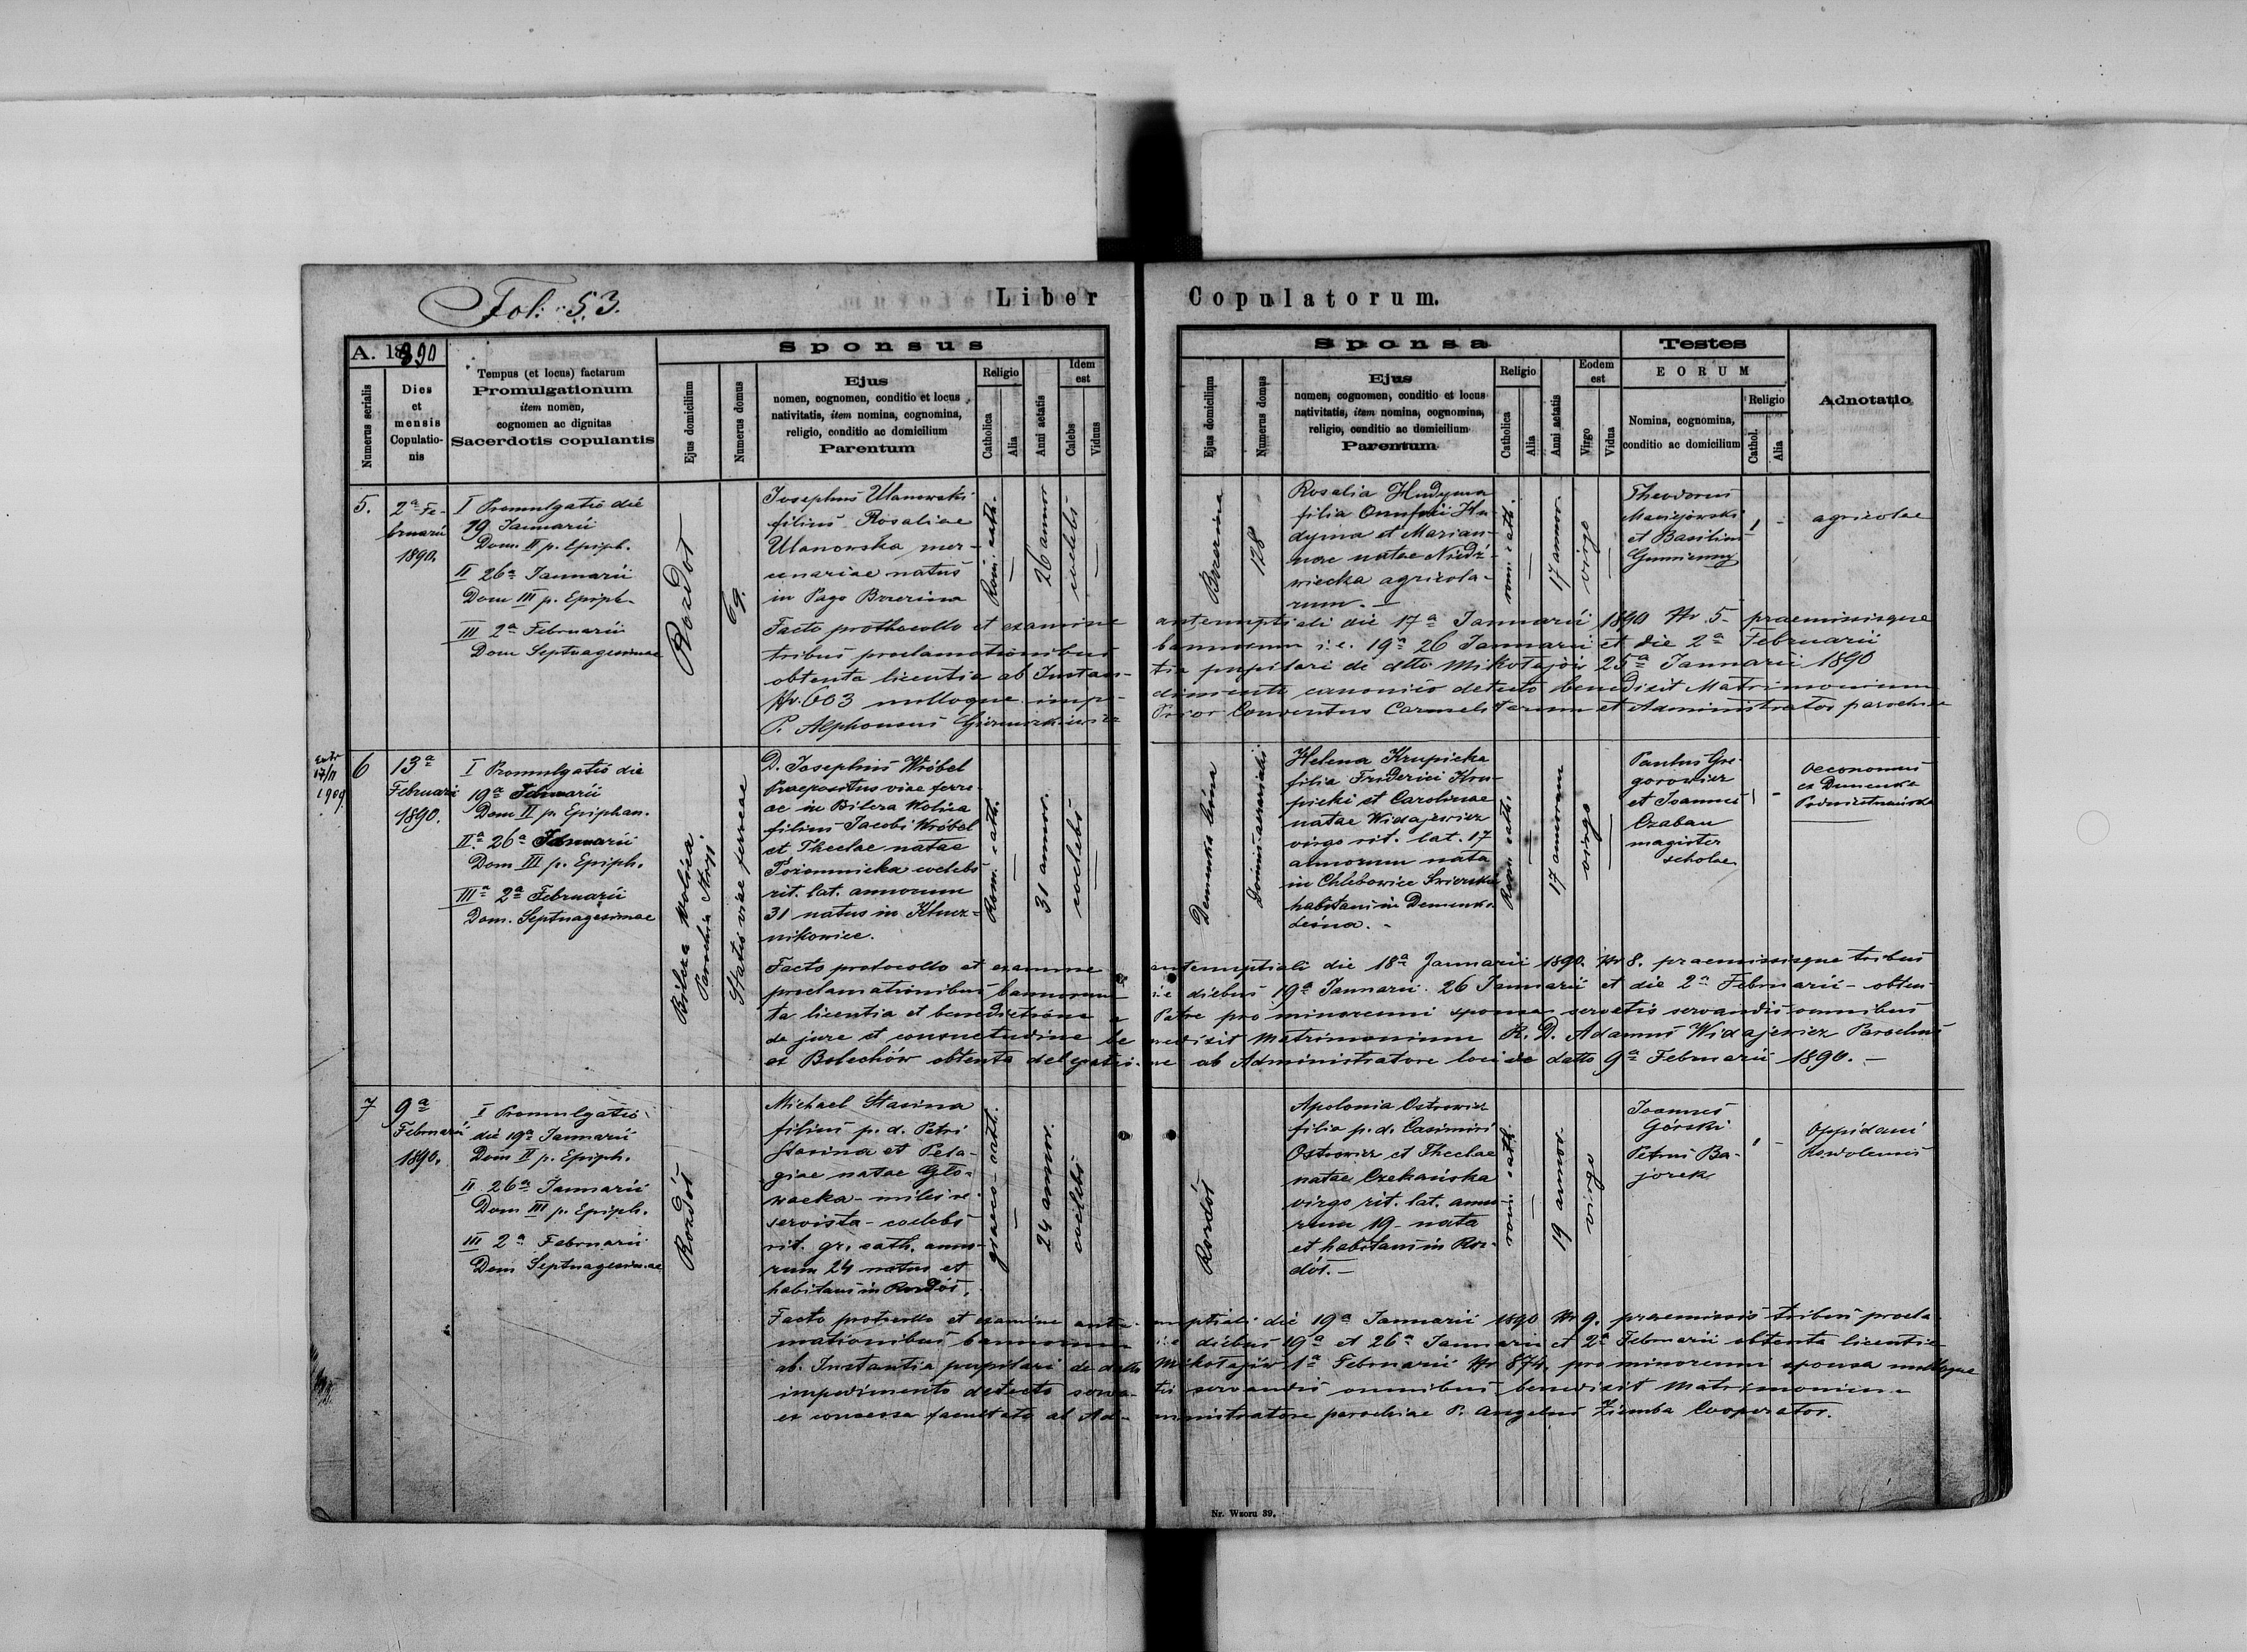 Fol: 53.
Liber Copulatorum.
A. 1890
Numerus serialis
Dies
et
mensis
Copulatio-
nis
Tempus (et locus) factarum
Promulgationum
item nomen,
cognomen ac dignitas
Sacerdotis copulantis
Sponsus
Ejus domicilium
Numerus domus
Ejus
nomen, cognomen, conditio et locus
nativitatis, item nomina, cognomina,
religio, conditio ac domicilium
Parentum
Religio
Catholica
Alia
Anni aetatis
Idem
est
Calebs
Viduus
Sponsa
Ejus domicilium
Numerus domus
Ejus
nomen, cognomen, conditio et locus
nativitatis, item nomina, cognomina,
religio, conditio ac domicilium
Parentum
Religio
Catholica
Alia
Anni aetatis
Eodem
est
Virgo
Vidua
Testes
EORUM
Nomina, cognomina,
conditio ac domicilium
Religio
Cathol.
Alia
Adnotatio
5.
2a Fe-
bruarii
1890.
I Promulgatio die
19 Januarii
Dom. II p. Epiph.
II 26a Januarii
Dom III p. Epiph.
III 2a Februarii
Dom Septuagesimae
Rozdół
69.
Josephus Ulanowski
filius Rosaliae
Ulanowska mer-
cenariae natus
in Pago Brzezina
Rom. cath.
26 annor
coelebs
Brzezina
178
Rosalia Hudyma
filia Onufrii Hu-
dyma et Marian-
nae natae Niedź-
wiecka agricola-
rum. —
rom. cath.
17 annor.
virgo
Theodorus
Maciejowski
et Basilius
Gumienny
agricolae
Facto prothocollo et examine antenuptiali die 17a Januarii 1890 Nr. 5 praemissisque
tribus proclamationibus bannorum i.e. 19a 26 Januarii et die 2a Februarii
obtenta licentia ab Instan- tia pupilari de dtto Mikołajów 25a Januarii 1890
Nr. 603 nulloque impe- dimento canonico detecto benedixit Matrimonium
P. Alphonsus Prior Conventus Carmelitarum et Administrator parochiae
1909
6
13a
Februarii
1890.
I Promulgatio die
19a Januarii
Dom II p. Epiphan.
II.a 26a Januarii
Dom III p. Epiph.
III a 2a Februarii
Dom. Septuagesimae
Bilcza Wolica
Parochia Stryj.
Statio viae ferreae
D. Josephus Wróbel
Praepositus viae ferre-
ae in Bilcza Wolica
filius Jacobi Wróbel
et Theclae natae
coelebs
rit. lat. annorum
31 natus in Klucz-
nikowice.
Rom. cath.
31 annor.
coelebs
Demenka leśna
Helena Krupicka
filia Friderici Kru-
picki et Carolinae
natae Widajewicz
virgo rit. lat. 17
annorum nata
in Chlebowice Świrskie
habitans in Demenka
Leśna. -
Rom. cath.
17 annorum
virgo
Paulus Gre-
gorowicz
et Joannes
Czaban
magister
scholae
oeconomus
ex Demenka
Facto protocollo et examine antenuptiali die 18a Januarii 1890. Nr 8. praemissisque tribus
proclamationibus bannorum i.e diebus 19a Januarii. 26 Januarii et die 2a Februarii - obten-
ta licentia et benedictione a Patre pro minorenni sponsa servatis servandis omnibus
de jure et consuetudine be nedixit Matrimonium R. D. Adamus Widajewicz Parochus
ex Bolechów obtenta delegatio- ne ab Administratore loci de datto 9a Februarii 1890. —
7
9a
Februarii
1890.
I Promulgatio
die 19a Januarii
Dom II p. Epiph.
II 26a Januarii
Dom III p. Epiph.
III 2a Februarii
Dom Septuagesimae
Rozdół
Michael Starina
filius p. d. Petri
Starina et Pela-
giae natae Gło-
wacka - miles re-
servista - coelebs
rit. gr. cath. anno-
rum 24 natus et
habitans in Rozdół.
graeco-cath.
24 annor.
coelebs
Rozdół
Apolonia Ostrowicz
filia p. d. Casimiri
Ostrowicz et Theclae
natae Czekańska
virgo rit. lat. anno-
rum 19 - nata
et habitans in Roz-
dół. —
rom. cath.
19 annor.
virgo
Joannes
Górski
Petrus Ba-
jorek
Oppidani
Facto protocollo et examine ante- nuptiali die 19a Januarii 1890 Nr 9. praemissis tribus procla-
mationibus bannorum i.e diebus 19a et 26a Januarii et 2a Februarii obtenta licentia
ab. Instantia pupilari de datto Mikołajów 1a Februarii Nr 874. pro minorenni sponsa nulloque
impedimento detecto serva- tis servandis omnibus benedixit Matrimonium
ex concessa facultate ab Ad- ministratore parochiae P. Angelus Ziemba Cooperator.
Nr. Wzoru 39.